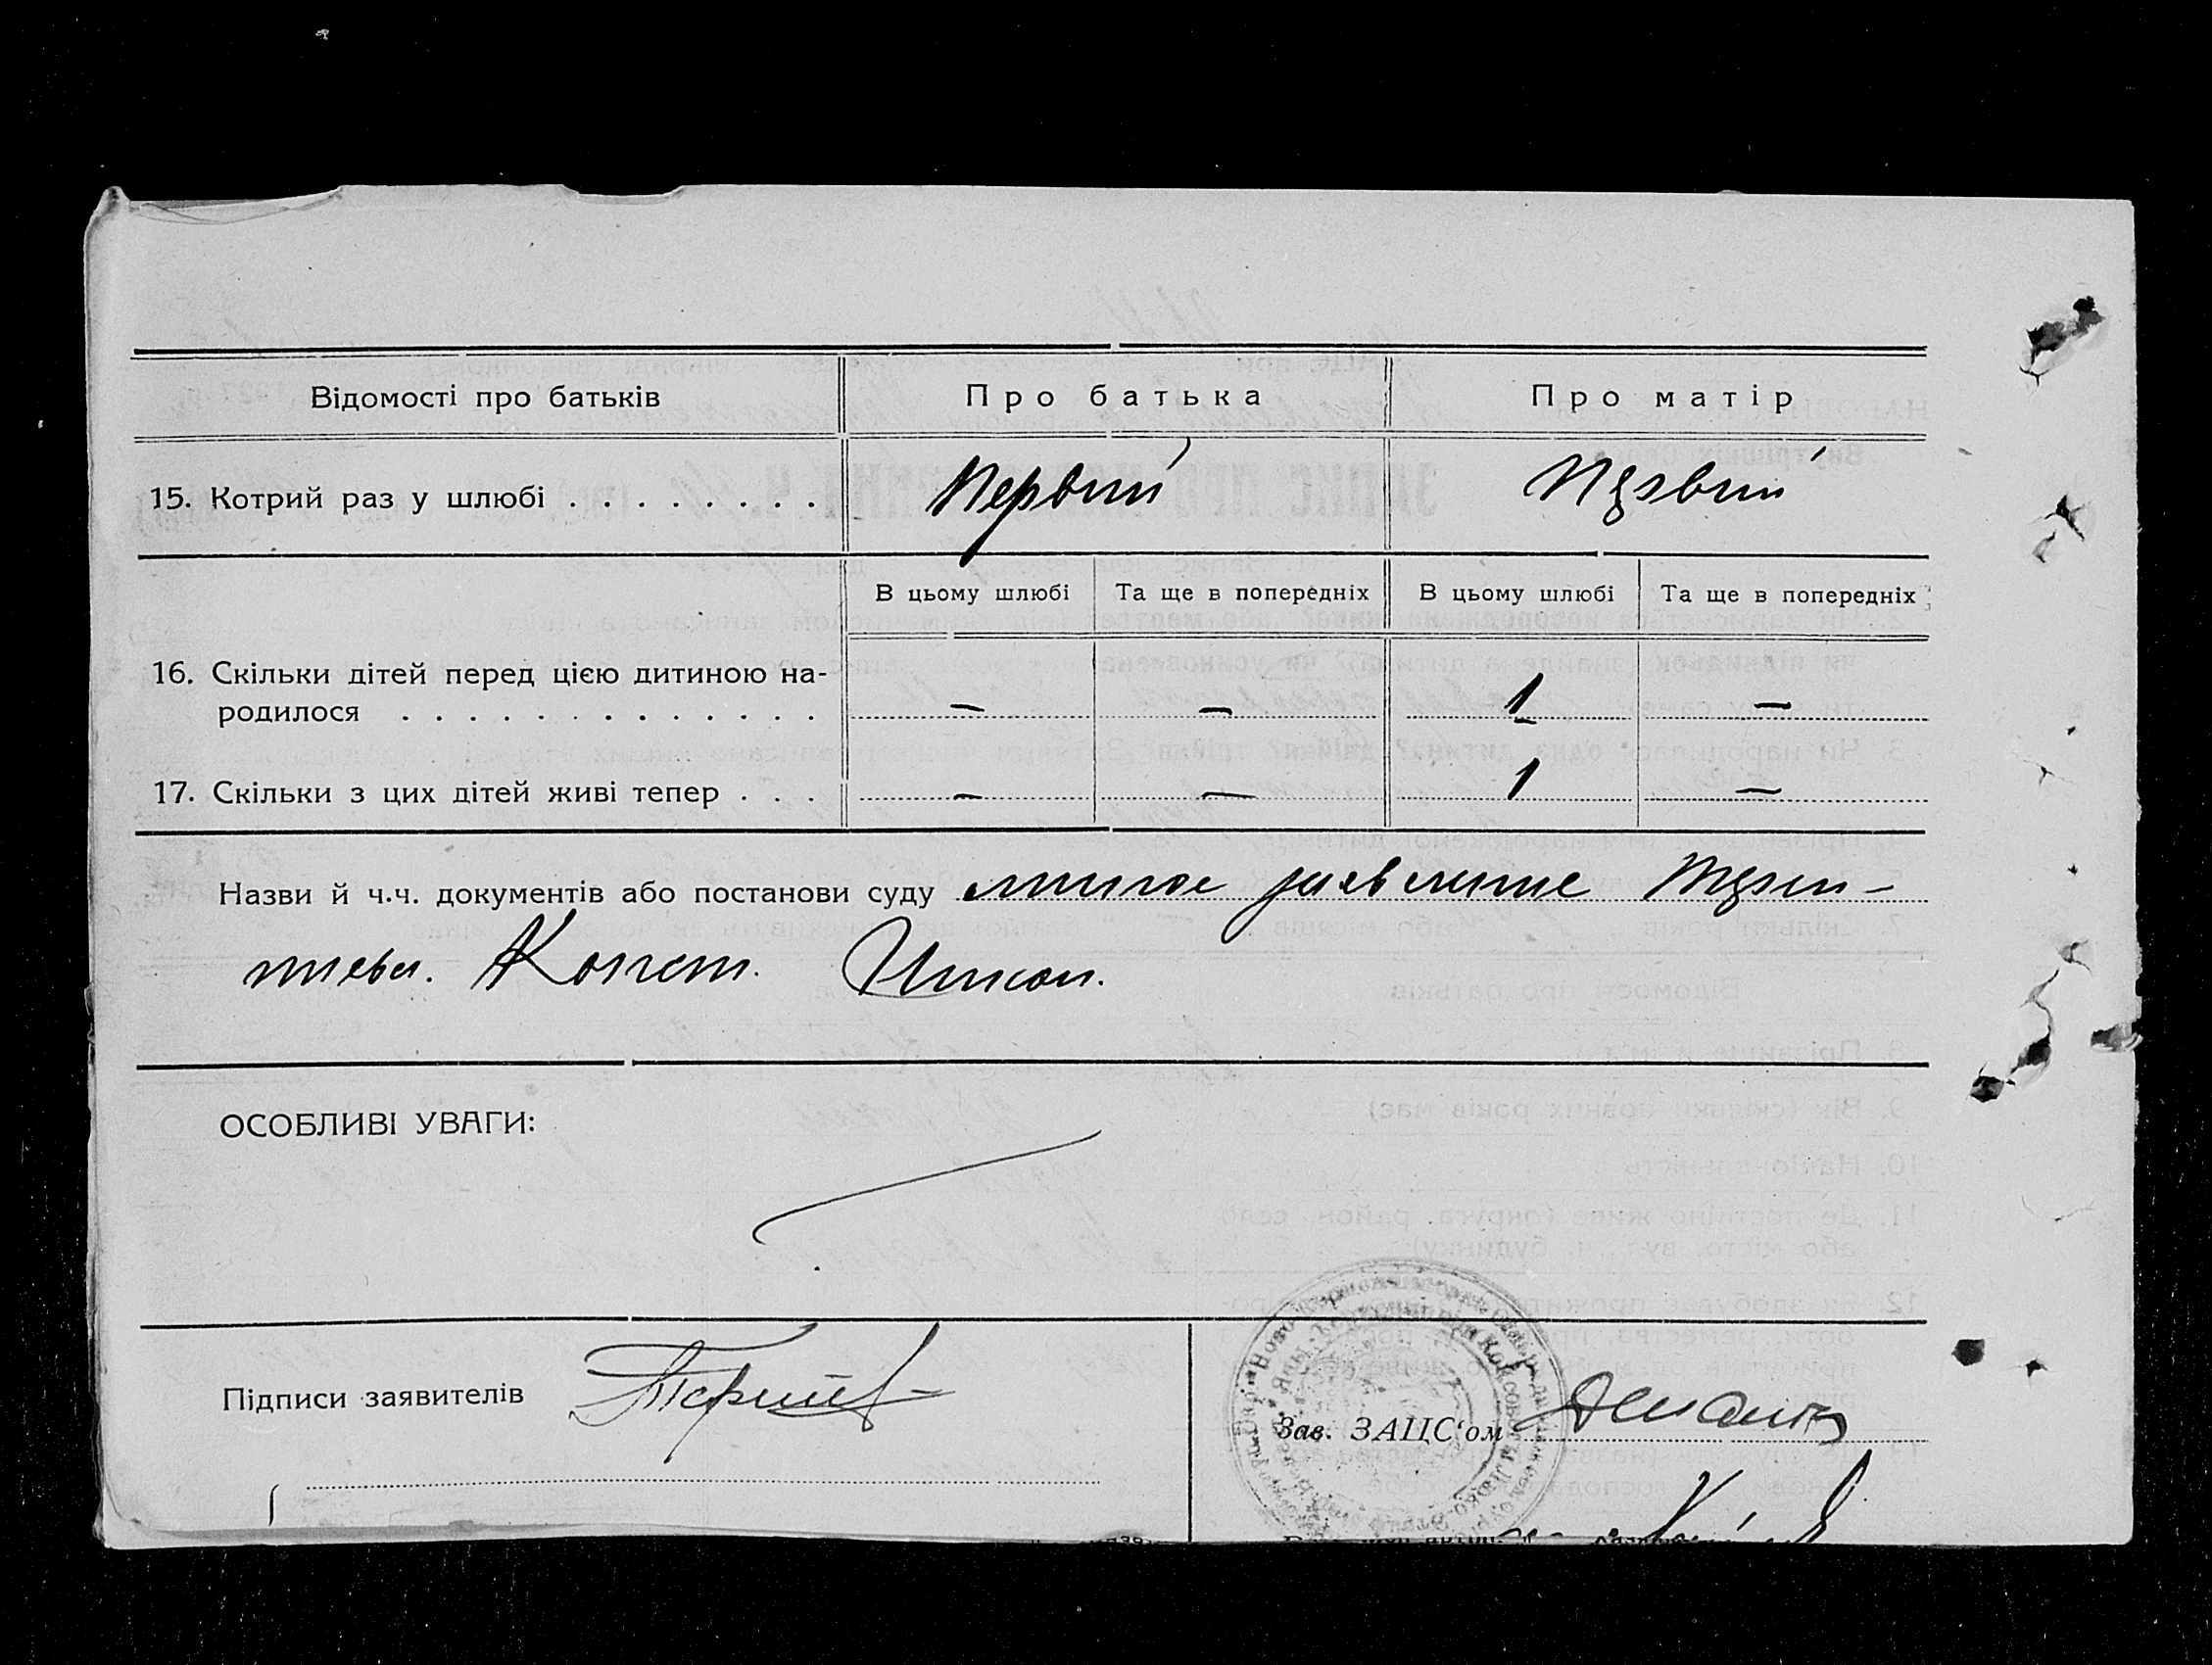 Відомості про батьків
Про батька
Про матір
15. Котрий раз у шлюбі . . . . . . . .
Первый
Первый
В цьому шлюбі
Та ще в попередніх
В цьому шлюбі
Та ще в попередніх
16. Скільки дітей перед цією дитиною на-
родилося . . . . . . . . . . . . .
—
—
1
—
17. Скільки з цих дітей живі тепер . . .
—
—
1
—
Назви й ч.ч. документів або постанови суду личное заявление
Конст. Никол.
ОСОБЛИВІ УВАГИ:
Підписи заявителів
Зав. ЗАЦС‘ом